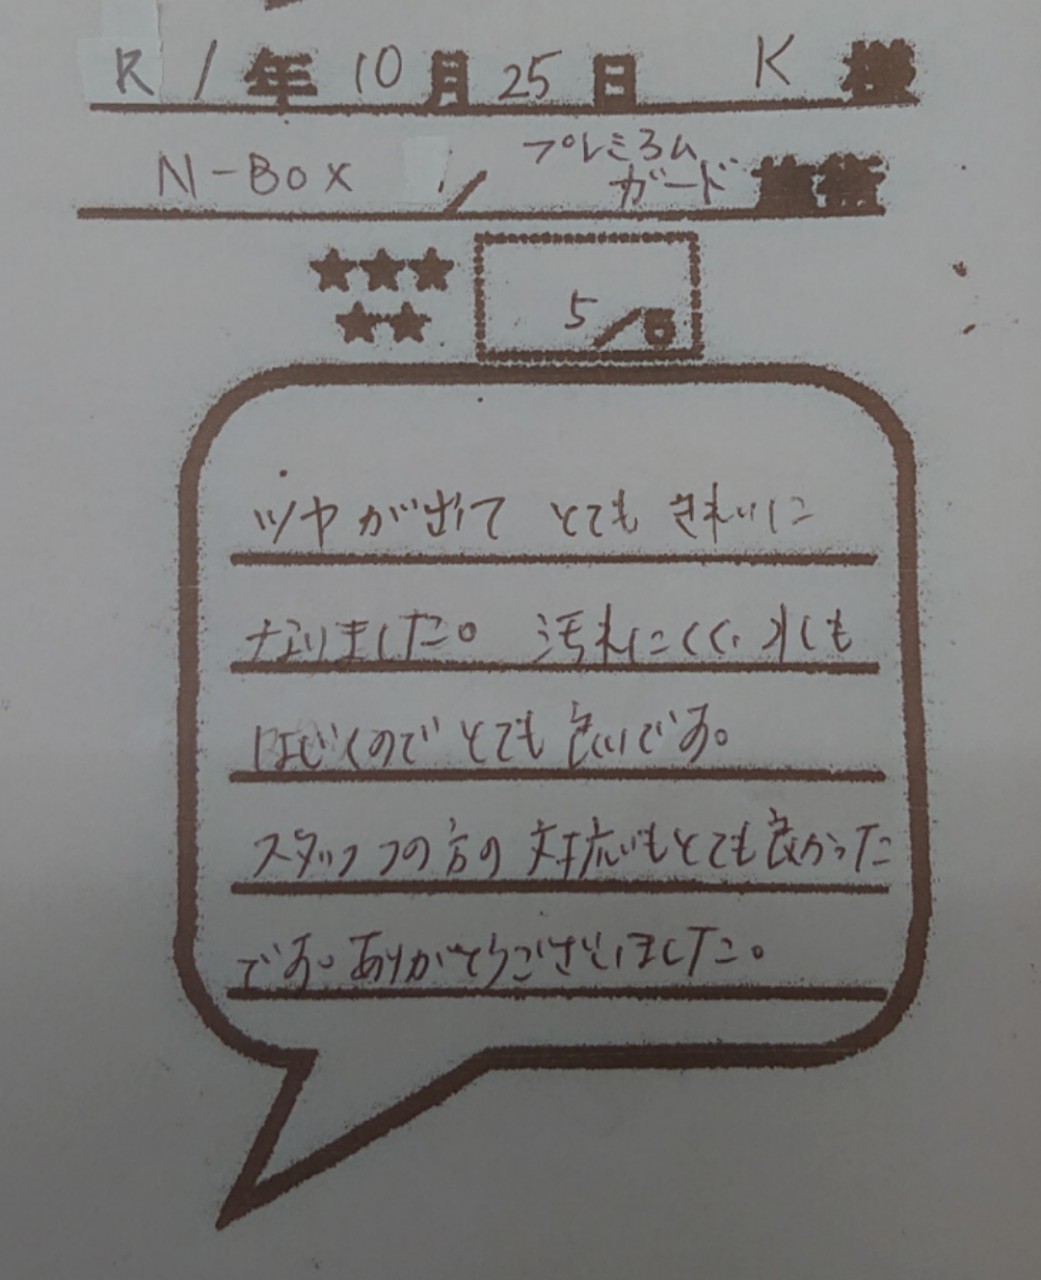 R1年10月25日 K 様
N-Box / プレミアム
ガード 施術
★★★
★★
5/5
ツヤが出て とても きれいに
なりました。 汚れにくく、水も
はじくのでとても良いです。
スタッフの方の対応もとても良かった
です。ありがとうございました。